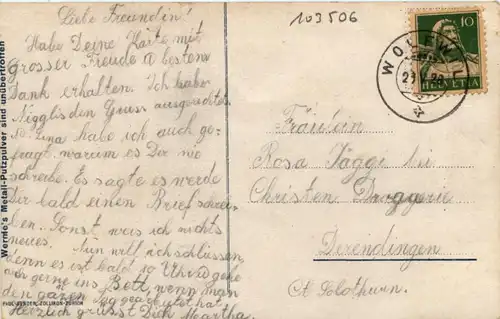 103506
Liebe Freundin!
Habe Deine Karte mit
grosser Freude & besten
Dank erhalten. Ich habe
Nigglis den Gruss ausgerichtet.
Lina habe ich auch ge-
fragt warum es Dir nie
schreibe. Es sagte es werde
Dir bald einen Brief schrei-
ben. Sonst weis ich nichts
neues. Nun will ich schlüssen,
denn es ist bald 10 Uhr u. gehe
auch gerne ins Bett, wenn man
den gazen Tag gearbeitet hat.
Herzlich grüsst Dich Martha.
Fräulein
Rosa Jäggi bei
Christen Droggerie
Derendingen
Ct. Solothurn.
10
HELVETIA
Wernle's Metall-Putzpulver sind unübertroffen